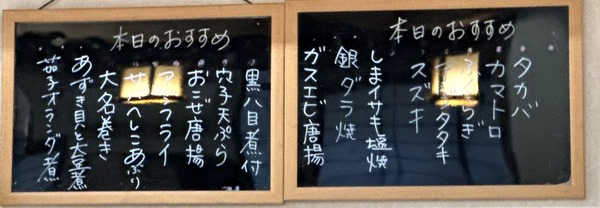 本日のおすすめ
タカバ
カマトロ
タタキ
スズキ
しまイサキ塩焼
銀ダラ焼
ガスエビ唐揚
本日のおすすめ
黒八目煮付
穴子天ぷら
おこぜ唐揚
アジフライ
サバへしこあぶり
大名巻き
あずき貝と大豆煮
茄子オランダ煮